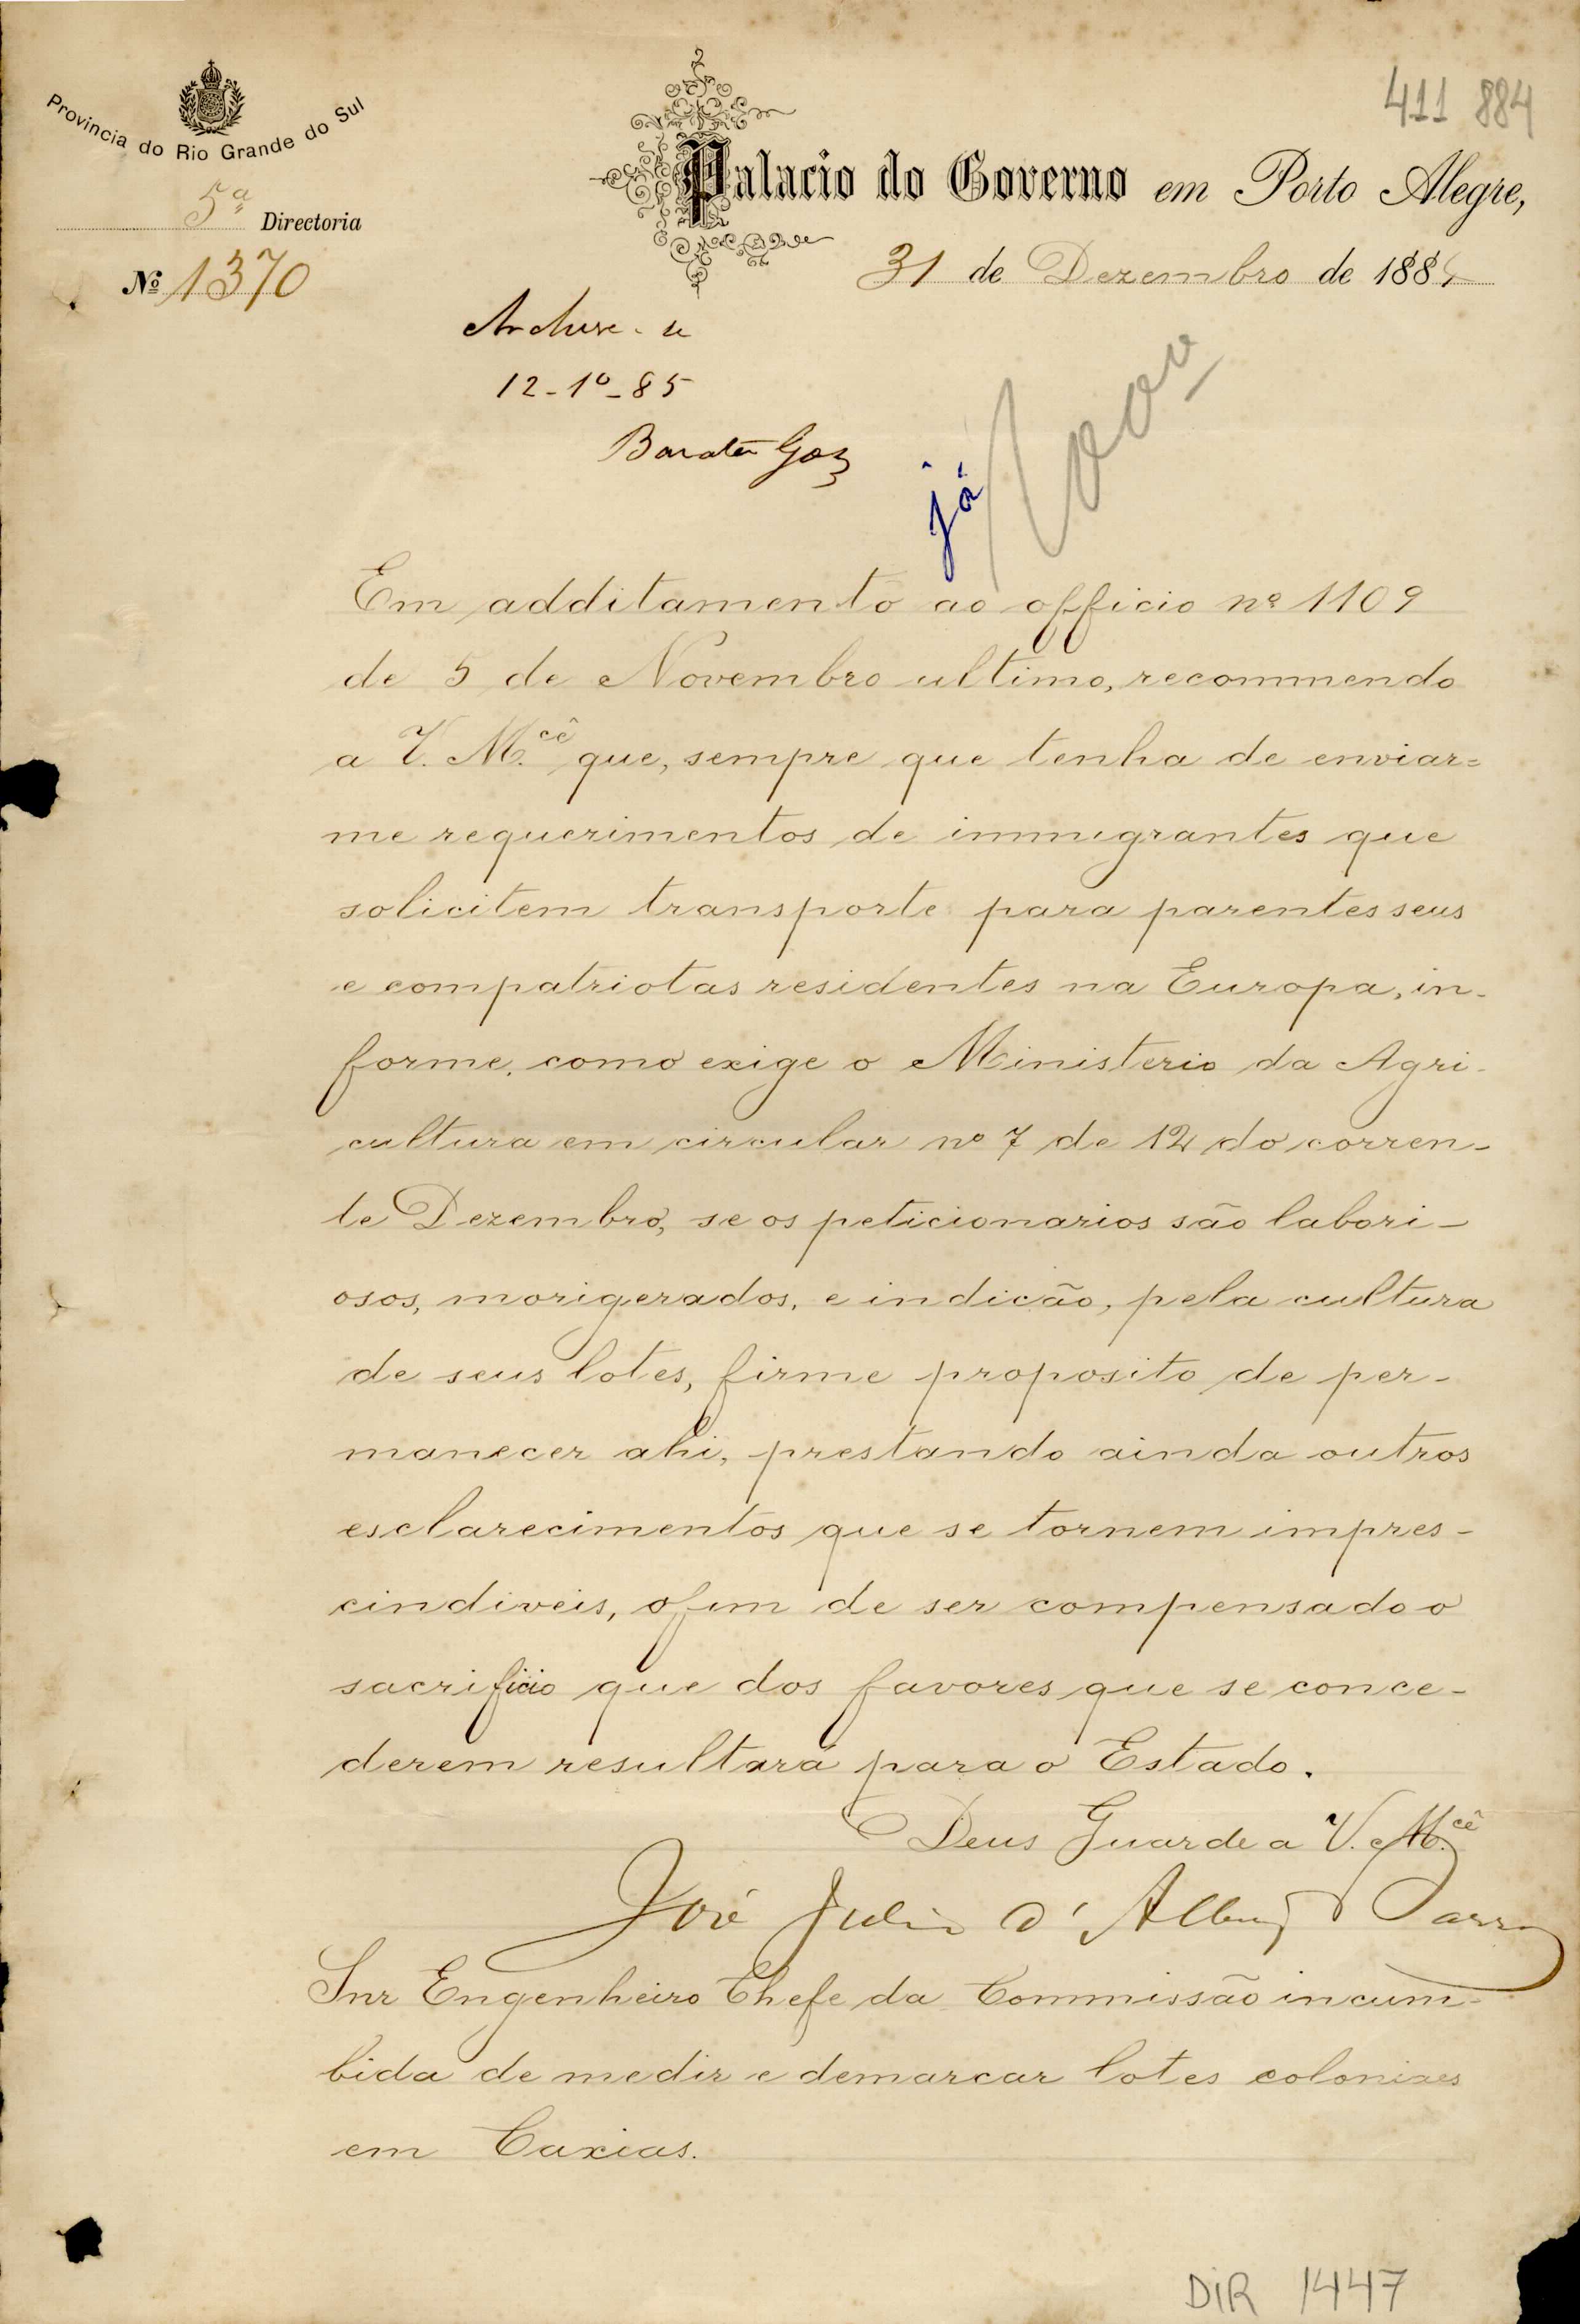 411 884
Provincia do Rio Grande do Sul
5ª Directoria
Nº 1370
Palacio do Governo em Porto Alegre,
31 de Dezembro de 1884
Archive-se
12-1º-85
Barata Goz
já
Em additamento ao officio nº 1109
de 5 de Novembro ultimo, recommendo
a V. M.cê que, sempre que tenha de enviar=
me requerimentos de immigrantes que
solicitem transporte para parentes seus
e compatriotas residentes na Europa, in-
forme, como exige o Ministerio da Agri-
cultura em circular nº 7 de 12 do corren-
te Dezembro, se os peticionarios são labori-
osos, morigerados, e indicão, pela cultura
de seus lotes, firme proposito de per-
manecer ahi, prestando ainda outros
esclarecimentos que se tornem impres-
cindiveis, afim de ser compensado o
sacrificio que dos favores que se conce-
derem resultará para o Estado.
Deus Guarde a V. M.cê
José Julio d'Albuq Barros
Snr Engenheiro Chefe da Commissão incum-
bida de medir e demarcar lotes coloniaes
em Caxias.
DIR 1447